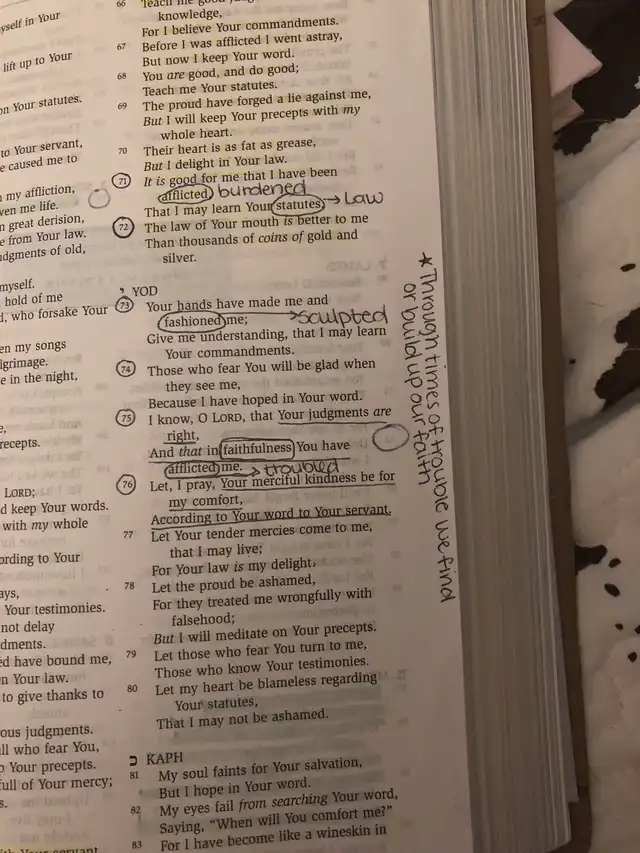 yself in Your
lift up to Your
on Your statutes.
to Your servant,
e caused me to
n my affliction,
ven me life.
n great derision,
e from Your law.
udgments of old,
myself.
hold of me
d, who forsake Your
en my songs
lgrimage.
e in the night,
e,
recepts.
LORD;
d keep Your words.
with my whole
ording to Your
ays,
Your testimonies.
not delay
dments.
ed have bound me,
n Your law.
to give thanks to
ous judgments.
ll who fear You,
p Your precepts.
full of Your mercy;
s.
66 Teach me good
knowledge,
For I believe Your commandments.
67 Before I was afflicted I went astray,
But now I keep Your word.
68 You are good, and do good;
Teach me Your statutes.
69 The proud have forged a lie against me,
But I will keep Your precepts with my
whole heart.
70 Their heart is as fat as grease,
But I delight in Your law.
71 It is good for me that I have been
afflicted, burdened
That I may learn Your statutes. → Law
72 The law of Your mouth is better to me
Than thousands of coins of gold and
silver.
י YOD
73 Your hands have made me and
fashioned me; → Sculpted
Give me understanding, that I may learn
Your commandments.
74 Those who fear You will be glad when
they see me,
Because I have hoped in Your word.
75 I know, O LORD, that Your judgments are
right,
And that in faithfulness You have
afflicted me. → troubled
76 Let, I pray, Your merciful kindness be for
my comfort,
According to Your word to Your servant.
77 Let Your tender mercies come to me,
that I may live;
For Your law is my delight.
78 Let the proud be ashamed,
For they treated me wrongfully with
falsehood;
But I will meditate on Your precepts.
79 Let those who fear You turn to me,
Those who know Your testimonies.
80 Let my heart be blameless regarding
Your statutes,
That I may not be ashamed.
כ KAPH
81 My soul faints for Your salvation,
But I hope in Your word.
82 My eyes fail from searching Your word,
Saying, "When will You comfort me?"
83 For I have become like a wineskin in
★Through times of trouble we find
or build up our faith